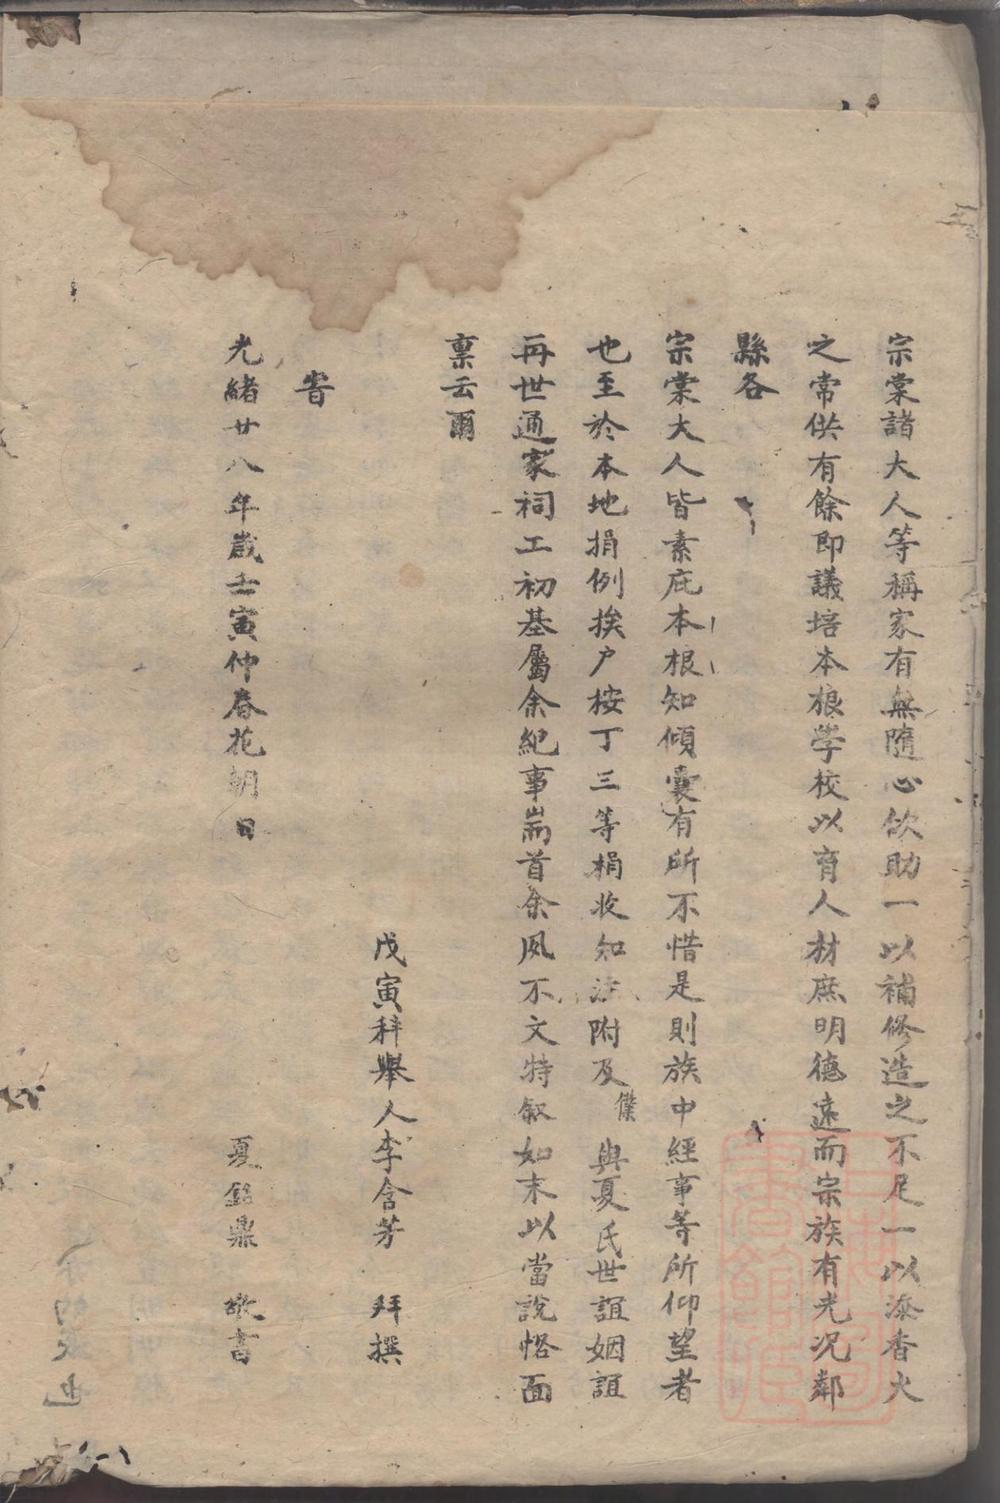 宗棠諸大人等稱家有無隨心佽助一以補修造之不足一以添香火
之常供有餘即議培本根學校以育人材庶明德遠而宗族有光况鄰
縣各
宗棠大人皆素庇本根知傾囊有所不惜是則族中經事等所仰望者
也至於本地捐例挨户按丁三等捐收知注附及僕與夏氏世誼姻誼
再世通家祠工初基屬余紀事耑首余夙不文特叙如末以當說恪面
稟云爾
戊寅科舉人李含芳 拜撰
旹
光緒廿八年歲壬寅仲春花朝日 夏銘鼎 敬書